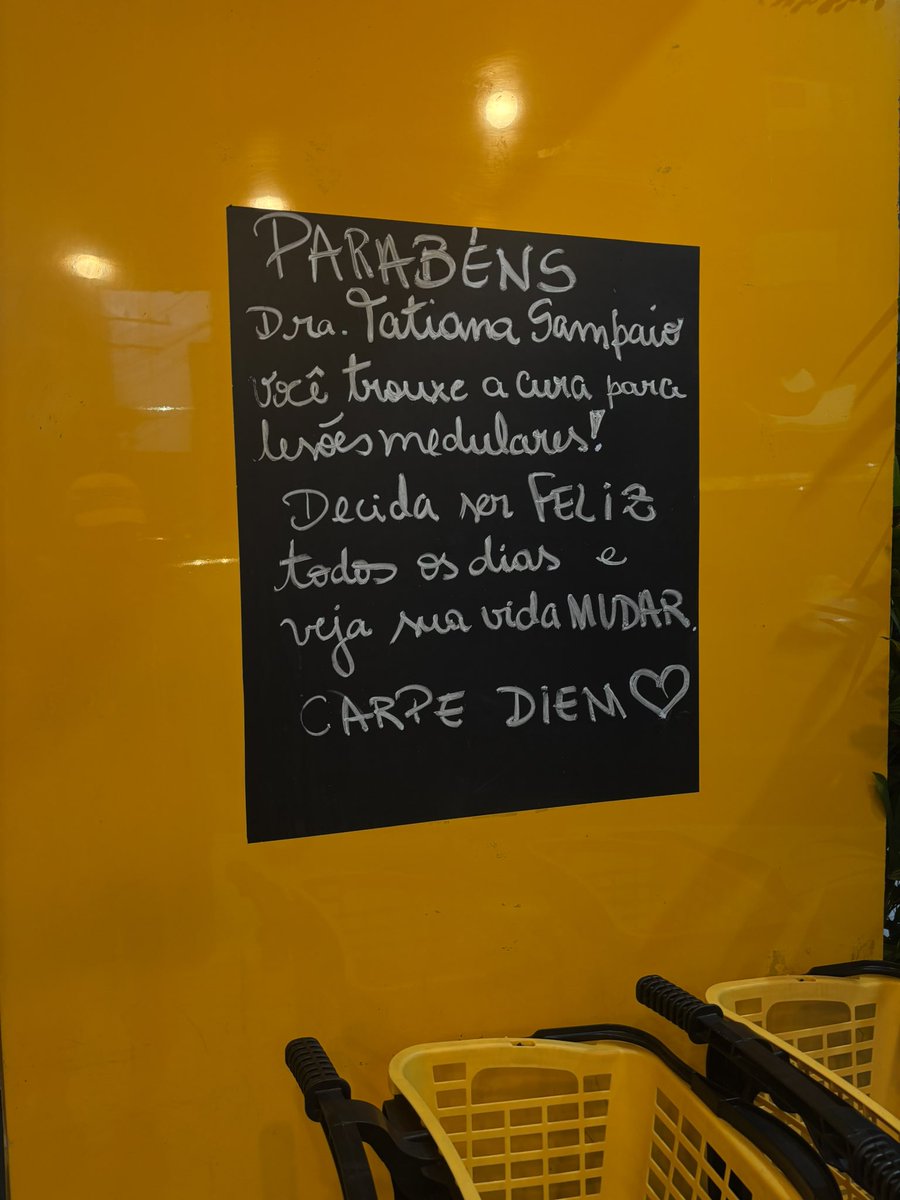 PARABÉNS
Dra. Tatiana Sampaio
você trouxe a cura para
lesões medulares!
Decida ser FELIZ
todos os dias e
veja sua vida MUDAR.
CARPE DIEM